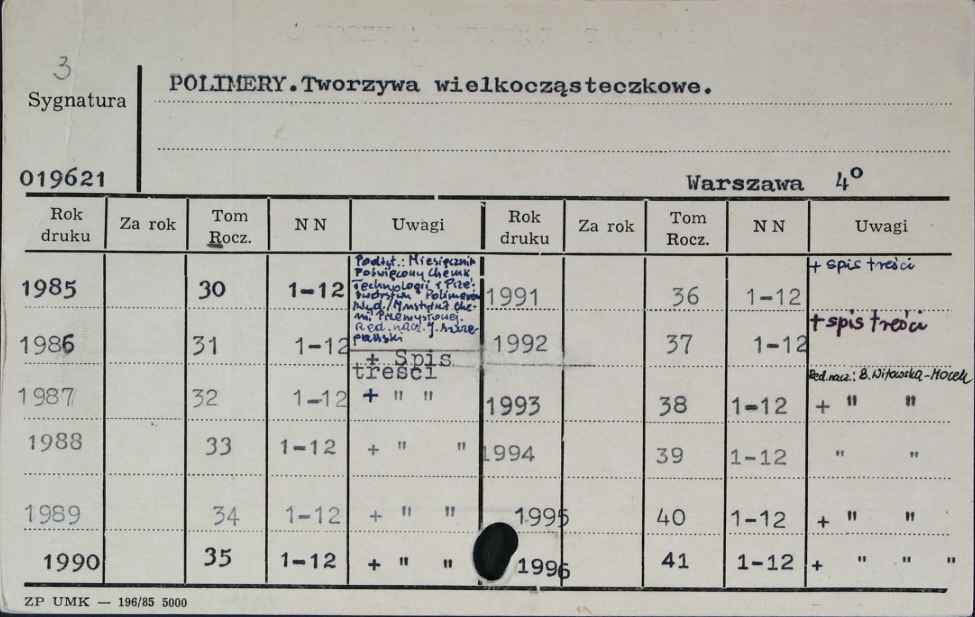 3
POLIMERY.Tworzywa wielkocząsteczkowe.
Sygnatura
019621
Warszawa 4°
Rok druku Za rok Tom Rocz. NN Uwagi Rok druku Za rok Tom Rocz. NN Uwagi
1985 30 1-12
Podtyt.: Miesięcznik
Poświęcony Chemii
Technologii i Prze-
twórstwu Polimerów
Wyd./Instytut Che-
mii Przemysłowej.
Red. nacz. J. Szcze-
pański
1991 36 1-12 + spis treści
1986 31 1-12 + Spis treści
1992 37 1-12 + spis treści
1987 32 1-12 + " "
Red.nacz.: B.Witowska-Mocek
1993 38 1-12 + " "
1988 33 1-12 + " "
1994 39 1-12 " "
1989 34 1-12 + " "
1995 40 1-12 + " "
1990 35 1-12 + " "
1996 41 1-12 + " " "
ZP UMK — 196/85 5000